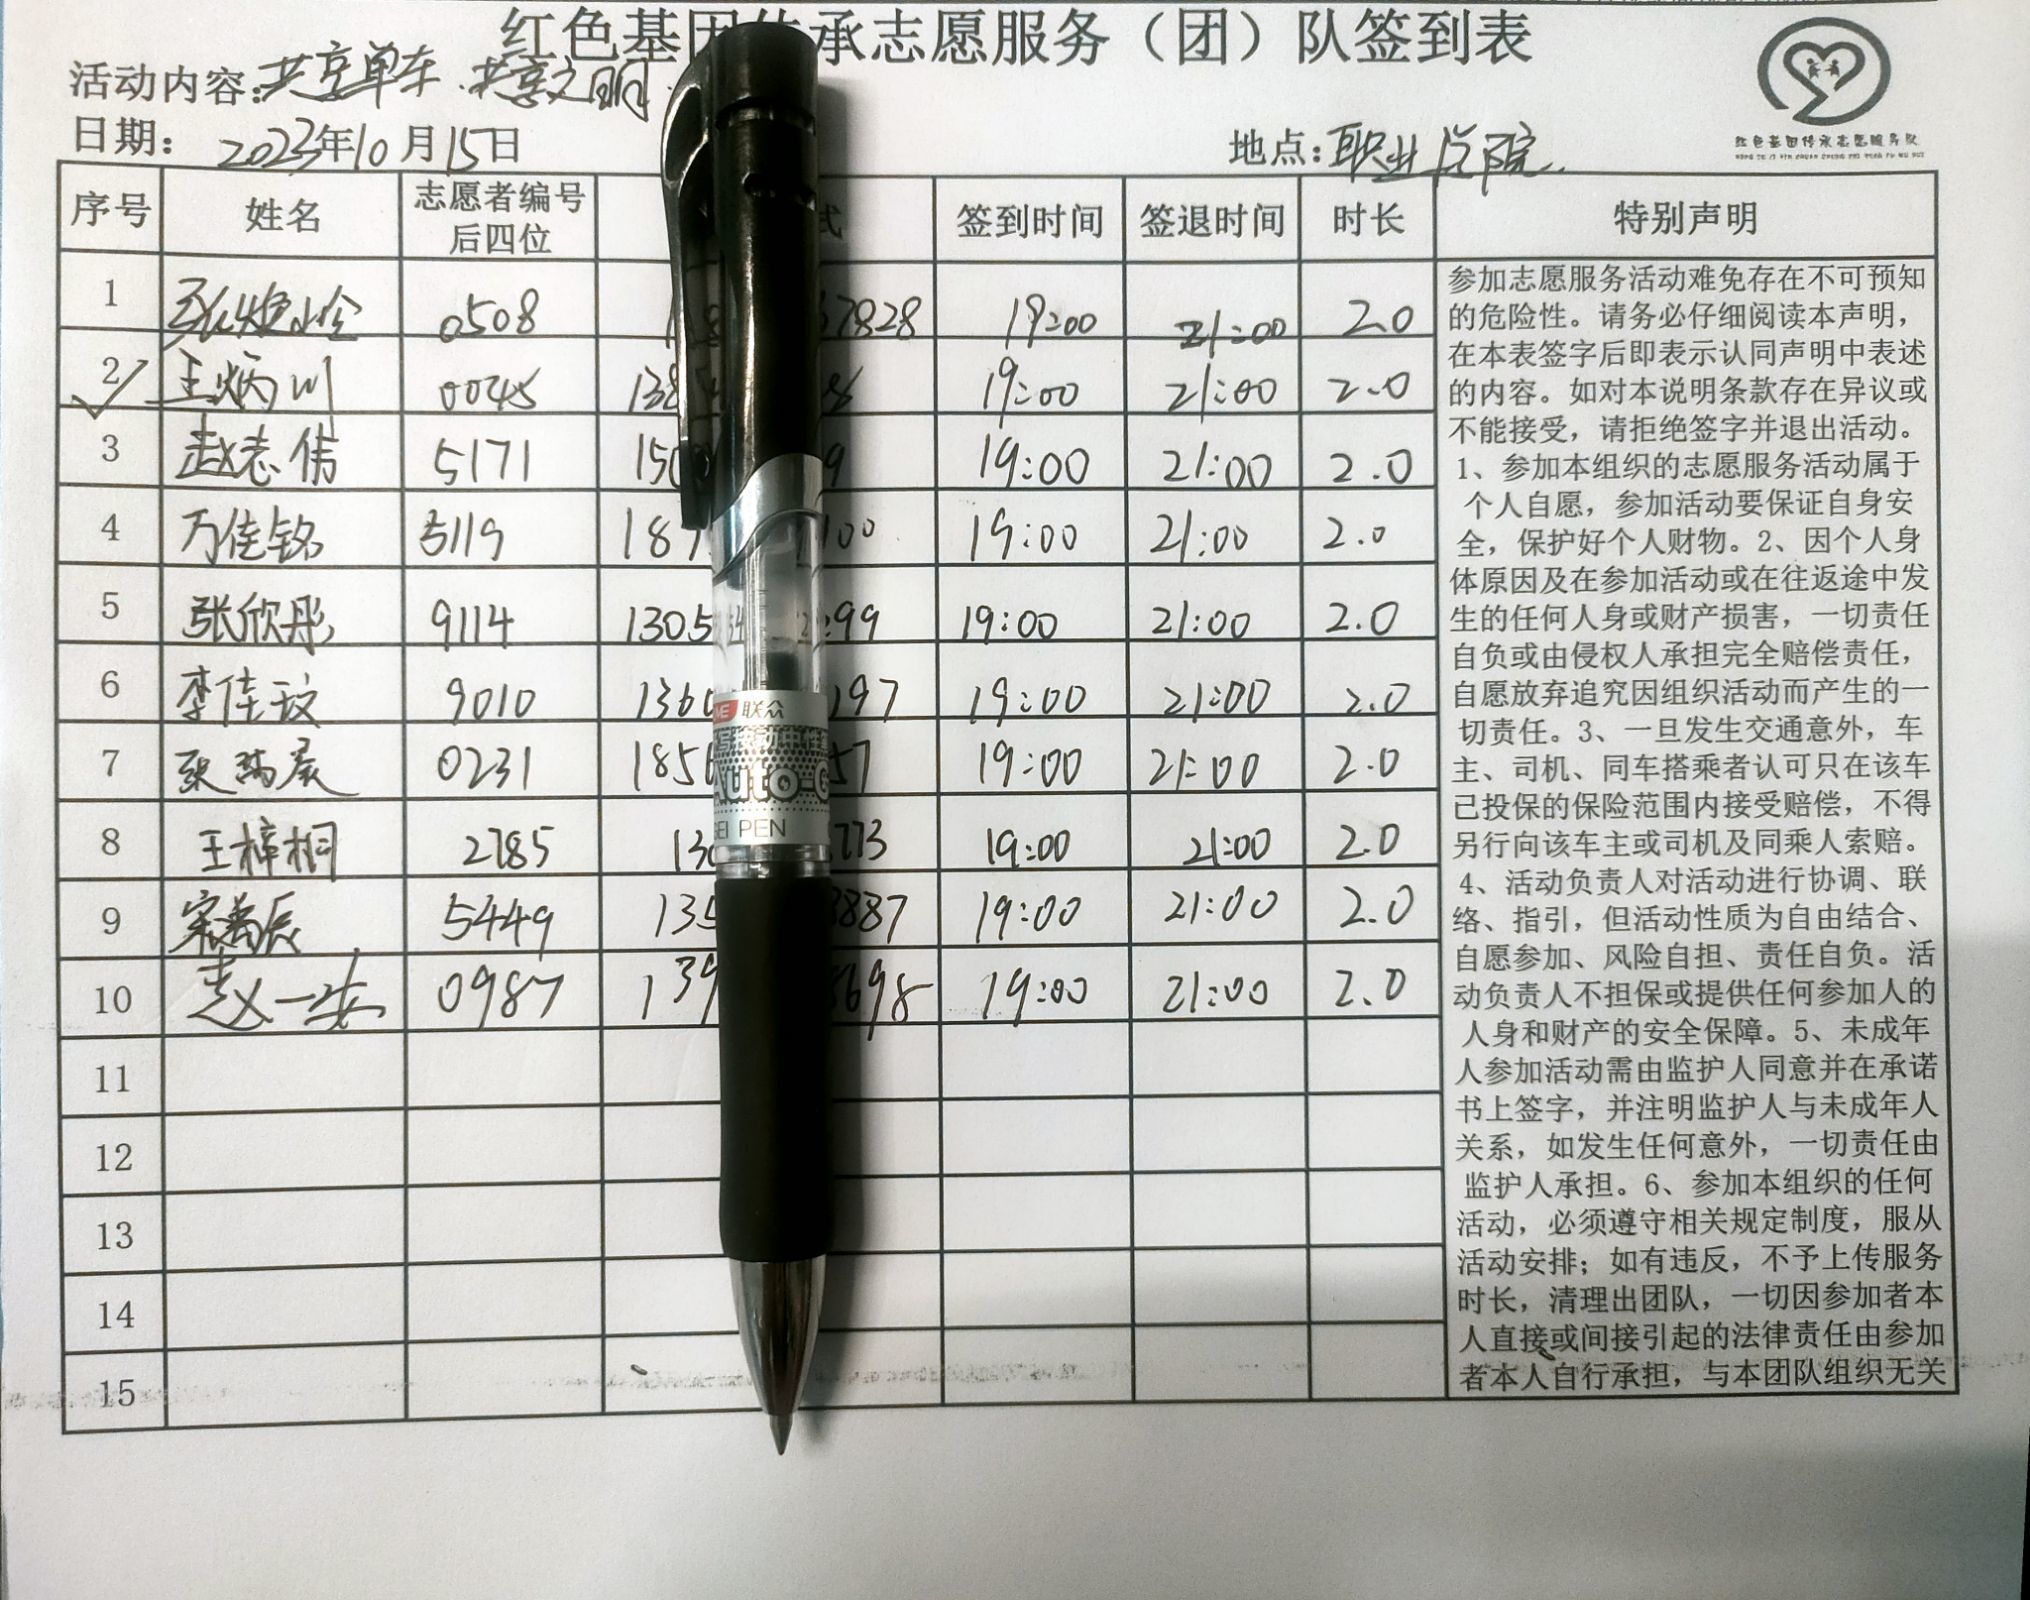 红色基因传承志愿服务（团）队签到表
活动内容：共享单车.共享文明.
日期： 2023年10月15日 地点：职业学院.
红色基因传承志愿服务队
序号 姓名 志愿者编号后四位 式 签到时间 签退时间 时长 特别声明
1 0508 7828 19:00 21:00 2.0
2 王炳川 0045 138 19:00 21:00 2.0
3 赵志伟 5171 150 9 19:00 21:00 2.0
4 万佳铭 5119 187 00 19:00 21:00 2.0
5 张欣彤 9114 1305 99 19:00 21:00 2.0
6 李佳玟 9010 1360 197 19:00 21:00 2.0
7 0231 1856 57 19:00 21:00 2.0
8 王梓桐 2785 130 773 19:00 21:00 2.0
9 5449 135 887 19:00 21:00 2.0
10 赵一安 0987 139 698 19:00 21:00 2.0
11
12
13
14
15
参加志愿服务活动难免存在不可预知
的危险性。请务必仔细阅读本声明，
在本表签字后即表示认同声明中表述
的内容。如对本说明条款存在异议或
不能接受，请拒绝签字并退出活动。
1、参加本组织的志愿服务活动属于
个人自愿，参加活动要保证自身安
全，保护好个人财物。2、因个人身
体原因及在参加活动或在往返途中发
生的任何人身或财产损害，一切责任
自负或由侵权人承担完全赔偿责任，
自愿放弃追究因组织活动而产生的一
切责任。3、一旦发生交通意外，车
主、司机、同车搭乘者认可只在该车
已投保的保险范围内接受赔偿，不得
另行向该车主或司机及同乘人索赔。
4、活动负责人对活动进行协调、联
络、指引，但活动性质为自由结合、
自愿参加、风险自担、责任自负。活
动负责人不担保或提供任何参加人的
人身和财产的安全保障。5、未成年
人参加活动需由监护人同意并在承诺
书上签字，并注明监护人与未成年人
关系，如发生任何意外，一切责任由
监护人承担。6、参加本组织的任何
活动，必须遵守相关规定制度，服从
活动安排；如有违反，不予上传服务
时长，清理出团队，一切因参加者本
人直接或间接引起的法律责任由参加
者本人自行承担，与本团队组织无关
联众
Auto-G
GEl PEN